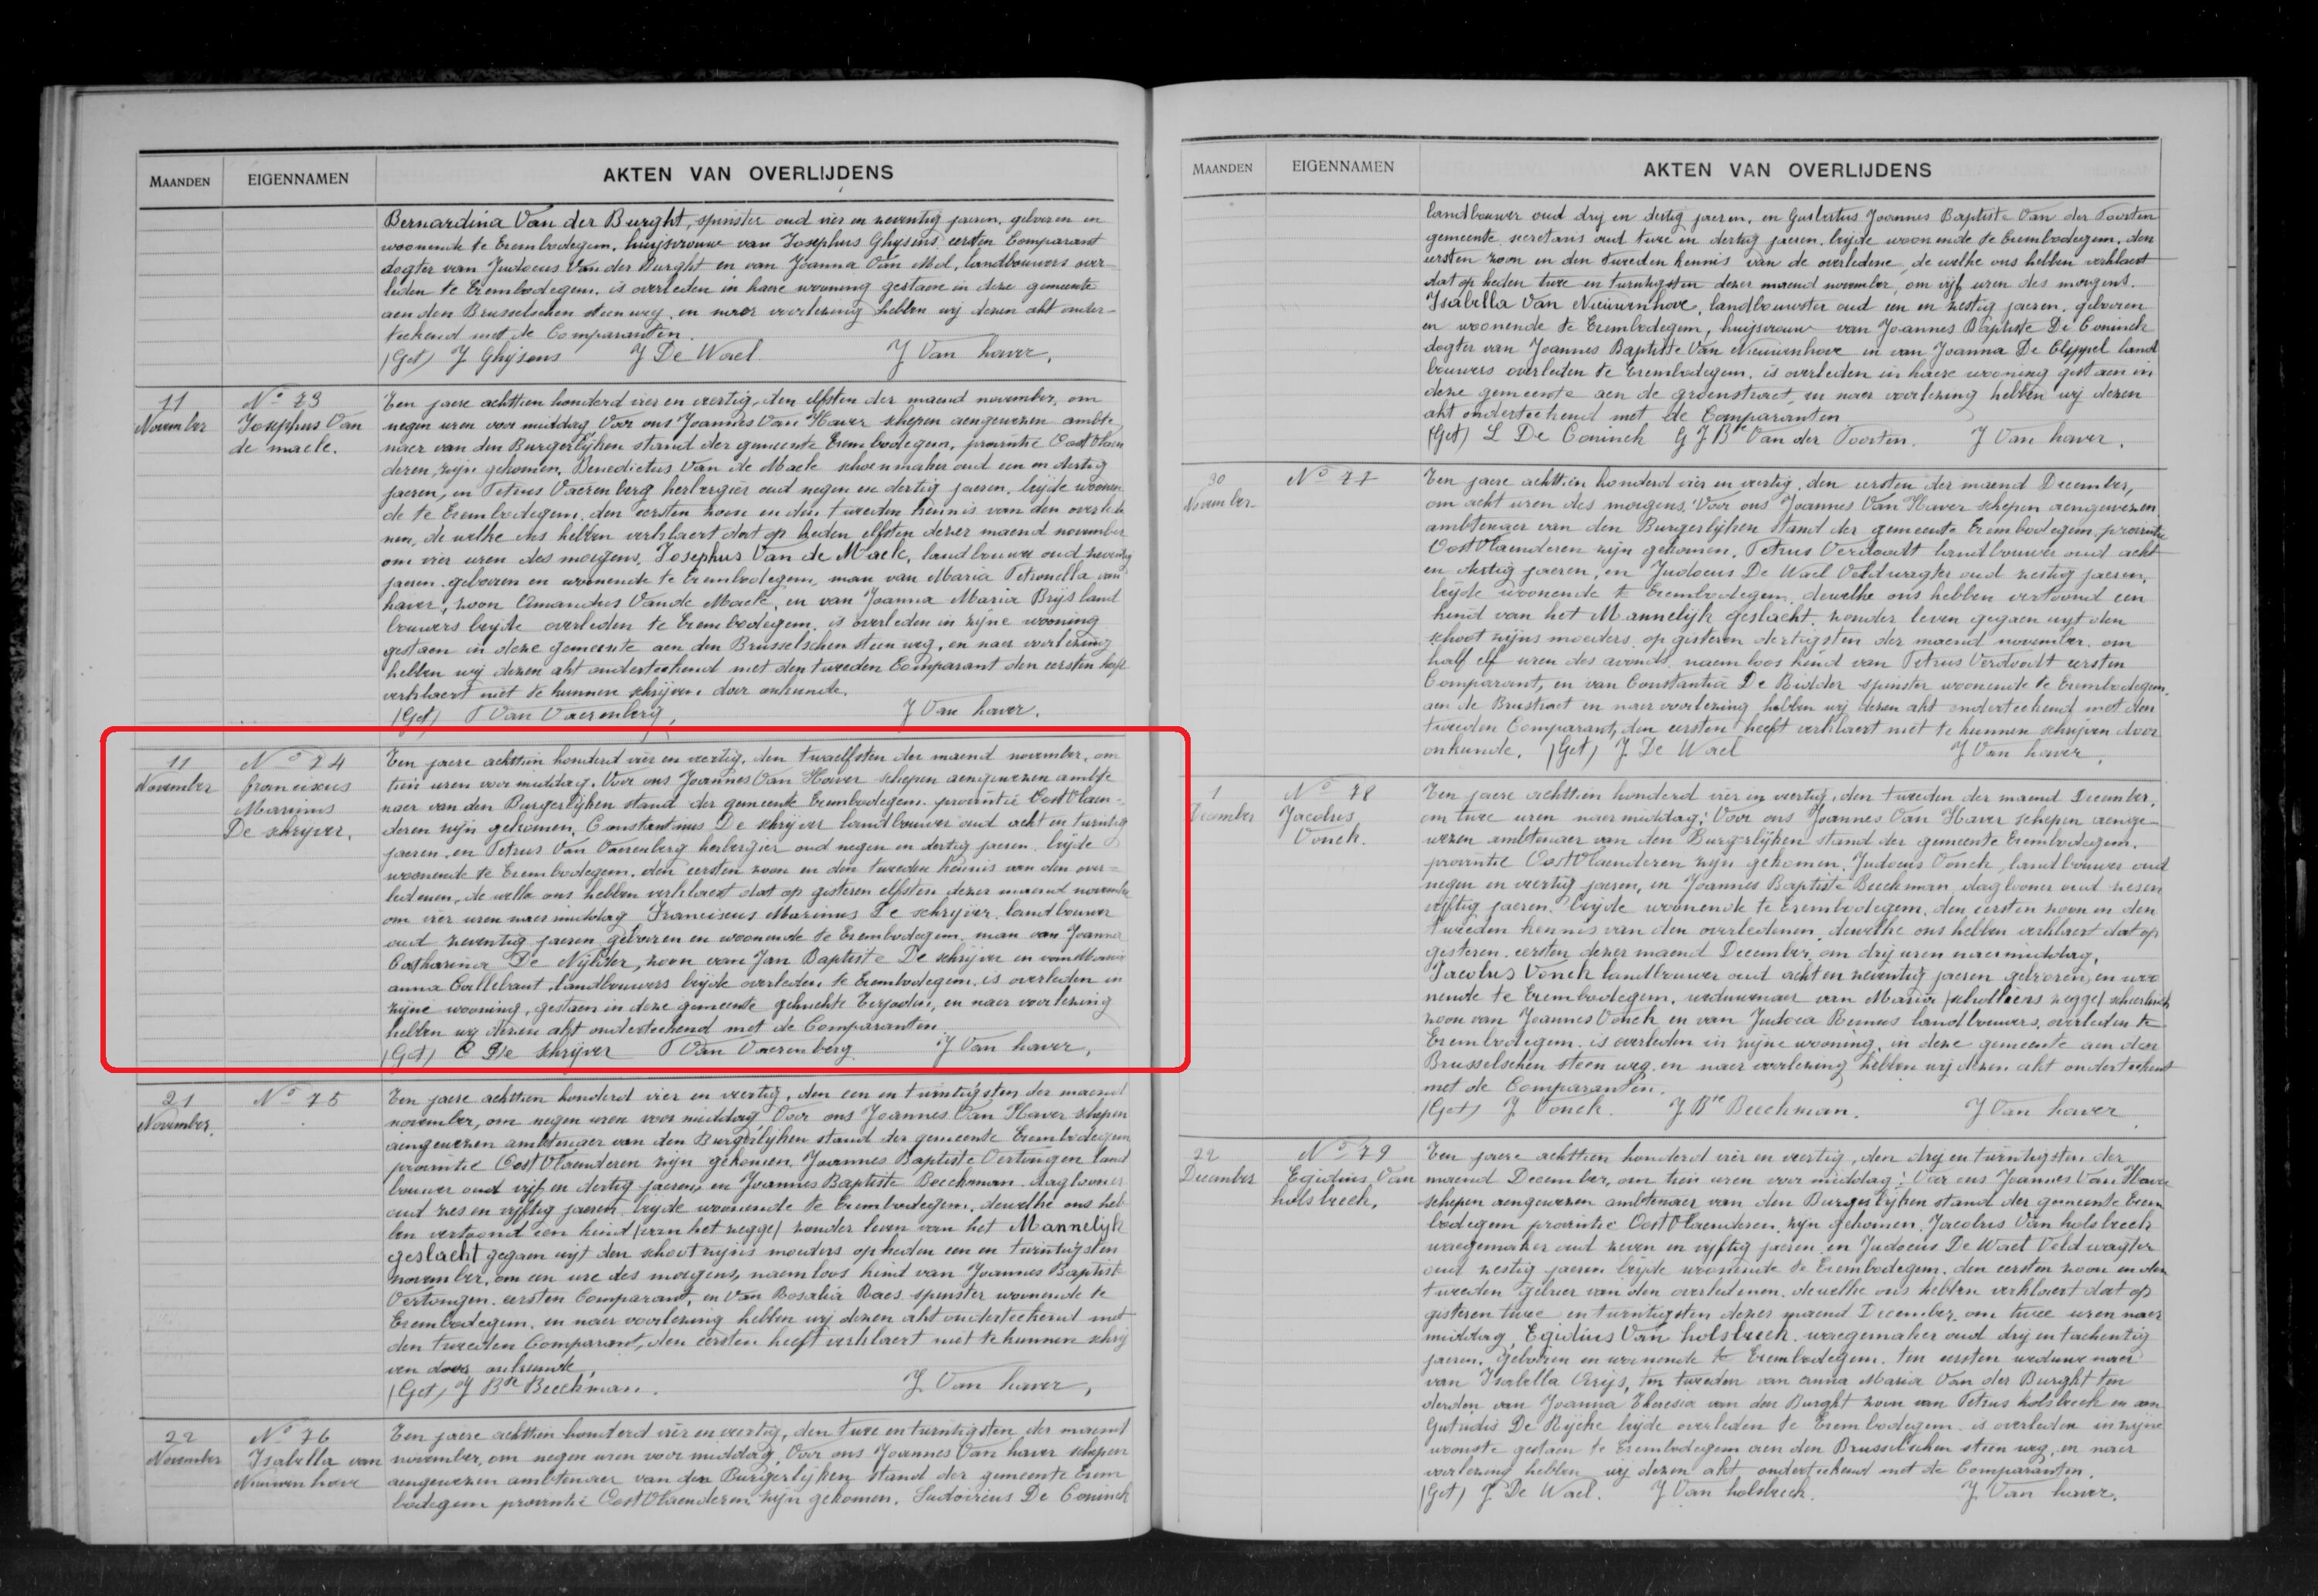 MAANDEN EIGENNAMEN AKTEN VAN OVERLIJDENS
Bernardina Van der Burght, spinster oud vier en zeventig jaeren, geboren en
woonende te Erembodegem, huijsvrouw van Josephus Ghysens eersten Comparant
dogter van Judocus Van der Burght en van Joanna Van Mol, landbouwers over-
leden te Erembodegem, is overleden in haere wooning gestaen in deze gemeente
aen den Brusselschen steenweg, en naer voorlezing hebben wij dezen akt onder-
teekend met de Comparanten.
(Get) J Ghijsens J De Wael. J Van haver.
11 November
No 73
Josephus Van
de maele.
Een jaere achttien honderd vier en veertig, den elfsten der maend november, om
negen uren voor middag Voor ons Joannes Van Haver schepen aengewezen ambte
naer van den Burgerlijken stand der gemeente Erembodegem, provintie Oost Vlaen
deren, zijn gekomen, Benedictus Van de Maele schoenmaker oud een en dertig
jaeren, en Petrus Vaerenberg herbergier oud negen en dertig jaeren, beijde woonen
de te Erembodegem, den eersten zoon en den tweeden kennis van den overlede
nen, de welke ons hebben verklaert dat op heden elfsten dezer maend november
om vier uren des morgens, Josephus Van de Maele, landbouwer oud zeventig
jaeren geboren en woonende te Erembodegem, man van Maria Petronella van
haver, zoon Amandus Vande Maele, en van Joanna Maria Brijs land
bouwers beijde overleden te Erembodegem, is overleden in zijne wooning
gestaen in deze gemeente aen den Brusselschen steenweg, en naer voorlezing
hebben wij dezen akt onderteekend met den tweeden Comparant den eersten heeft
verklaert niet te kunnen schrijven door onkunde.
(Get) P Van Vaerenberg, J Van haver.
11 November
No 74
franciscus
Marinus
De schrijver.
Een jaere achttien honderd vier en veertig, den twaelfsten der maend november, om
tien uren voor middag. Voor ons Joannes Van Haver schepen aengewezen ambte
naer van den Burgerlijken stand der gemeente Erembodegem provintie Oost Vlaen-
deren zijn gekomen, Constantinus De schrijver landbouwer oud acht en twintig
jaeren en Petrus Van Vaerenberg herbergier oud negen en dertig jaeren, beijde
woonende te Erembodegem, den eersten zoon en den tweeden kennis van den over-
ledenen, de welke ons hebben verklaert dat op gisteren elfsten dezer maend november
om vier uren naer middag Franciscus Marinus De schrijver, landbouwer
oud zeventig jaeren geboren en woonende te Erembodegem, man van Joanna
Catharina De Nijlder, zoon van Jan Baptiste De schrijver en van Maria
anna Callebaut, landbouwers beijde overleden te Erembodegem, is overleden in
zijne wooning, gestaen in deze gemeente gehuchte Terjoden, en naer voorlezing
hebben wij dezen akt onderteekend met de Comparanten.
(Get) C De schrijver P Van Vaerenberg J Van haver,
21 November.
No 75
Een jaere achttien honderd vier en veertig, den een en twintigsten der maend
november, om negen uren voor middag Voor ons Joannes Van Haver schepen
aengewezen ambtenaer van den Burgerlijken stand der gemeente Erembodegem
provintie Oost Vlaenderen zijn gekomen, Joannes Baptiste Vertongen land
bouwer oud vijf en dertig jaeren, en Joannes Baptiste Beeckman daglooner
oud zes en vijftig jaeren beijde woonende te Erembodegem, dewelke ons heb
ben vertoond een kind (van het zegge) zonder leven van het Mannelijk
geslacht gegaen uijt den schoot zijns moeders op heden een en twintigsten
november, om een ure des morgens, naemloos kind van Joannes Baptist
Vertongen eersten Comparant, en Van Rosalia Raes spinster woonende te
Erembodegem, en naer voorlezing hebben wij dezen akt onderteekend met
den tweeden Comparant, den eersten heeft verklaert niet te kunnen schrij
ven door onkunde,
(Get) J Bte Beeckman. J Van haver,
22 November
No 76
Isabella van
Nieuwenhove
Een jaere achttien honderd vier en veertig, den twee en twintigsten der maend
november, om negen uren voor middag, Voor ons Joannes Van haver schepen
aengewezen ambtenaer van den Burgerlijken stand der gemeente Erem
bodegem provintie Oost Vlaenderen zijn gekomen, Ludovicus De Coninck
MAANDEN EIGENNAMEN AKTEN VAN OVERLIJDENS
landbouwer oud drij en dertig jaeren, en Gusbertus Joannes Baptiste Van der Toorten
gemeente secretaris oud twee en dertig jaeren, beijde woonende te Erembodegem, den
eersten zoon en den tweeden kennis van de overledene, de welke ons hebben verklaert
dat op heden twee en twintigsten dezer maend november, om vijf uren des morgens.
Isabella Van Nieuwenhove, landbouwster oud een en zestig jaeren, geboren
en woonende te Erembodegem, huijsvrouw van Joannes Baptiste De Coninck
dogter van Joannes Baptiste Van Nieuwenhove en van Joanna De Clippel land
bouwers overleden te Erembodegem, is overleden in haere wooning gestaen in
deze gemeente aen de groenstraet, en naer voorlezing hebben wij dezen
akt onderteekend met de Comparanten
(Get) L De Coninck G J Bte Van der Toorten. J Van haver.
30 November
No 77
Een jaere achttien honderd vier en veertig, den eersten der maend December,
om acht uren des morgens, Voor ons Joannes Van Haver schepen aengewezen
ambtenaer van den Burgerlijken stand der gemeente Erembodegem, provintie
Oost Vlaenderen zijn gekomen, Petrus Verdoodt landbouwer oud acht
en dertig jaeren, en Judocus De Wael Veldwagter oud zestig jaeren,
beijde woonende te Erembodegem, dewelke ons hebben vertoond een
kind van het Mannelijk geslacht, zonder leven gegaen uyt den
schoot zijns moeders, op gisteren dertigsten der maend november, om
half elf uren des avonds, naemloos kind van Petrus Verdoodt eersten
Comparant, en van Constantia De Ridder spinster woonende te Erembodegem,
aen de Brustraet en naer voorlezing hebben wij dezen akt onderteekend met den
tweeden Comparant, den eersten heeft verklaert niet te kunnen schrijven door
onkunde. (Get) J De Wael J Van haver.
1 December
No 78
Jacobus
Vonck.
Een jaere achttien honderd vier en veertig, den tweeden der maend December,
om twee uren naer middag; Voor ons Joannes Van Haver schepen aenge-
wezen ambtenaer van den Burgerlijken stand der gemeente Erembodegem,
provintie Oost Vlaenderen zijn gekomen, Judocus Vonck, landbouwer oud
negen en veertig jaeren, en Joannes Baptiste Beeckman, daglooner oud zesen
vijftig jaeren, beijde woonende te Erembodegem, den eersten zoon en den
tweeden kennis van den overledenen, dewelke ons hebben verklaert dat op
gisteren, eersten dezer maend December, om drij uren naer middag,
Jacobus Vonck landbouwer oud acht en zeventig jaeren, geboren en woo
nende te Erembodegem, weduwnaer van Maria (scholliers zegge)
zoon van Joannes Vonck en van Judoca landbouwers, overleden te
Erembodegem, is overleden in zijne wooning, in deze gemeente aen den
Brusselschen steenweg, en naer voorlezing hebben wij dezen akt onderteekent
met de Comparanten.
(Get) J Vonck. J Bte Beeckman. J Van haver
22 December
No 79
Egidius Van
holsbeeck.
Een jaere achttien honderd vier en veertig, den drij en twintigsten der
maend December, om tien uren voor middag; Voor ons Joannes Van Haver
schepen aengewezen ambtenaer van den Burgerlijken stand der gemeente Erem
bodegem provintie Oost Vlaenderen, zijn gekomen, Jacobus Van holsbeeck
waegemaker oud zeven en vijftig jaeren, en Judocus De Wael Veldwagter
oud zestig jaeren beijde woonende te Erembodegem, den eersten zoon en den
tweeden gebuer van den overledenen, dewelke ons hebben verklaert dat op
gisteren twee en twintigsten dezer maend December, om twee uren naer
middag, Egidius Van holsbeeck, waegemaker oud drij en tachentig
jaeren, geboren en woonende te Erembodegem, ten eersten weduwenaer
van Isabella Arijs, ten tweeden van anna Maria Van der Burght ten
derden van Joanna Theresia van den Burght zoon van Petrus holsbeeck en van
Gertrudis De Rijcke beijde overleden te Erembodegem, is overleden in zijne
woonste gestaen te Erembodegem aen den Brusselschen steenweg, en naer
voorlezing hebben wij dezen akt onderteekend met de Comparanten.
(Get) J De Wael. J Van holsbeeck. J Van haver.